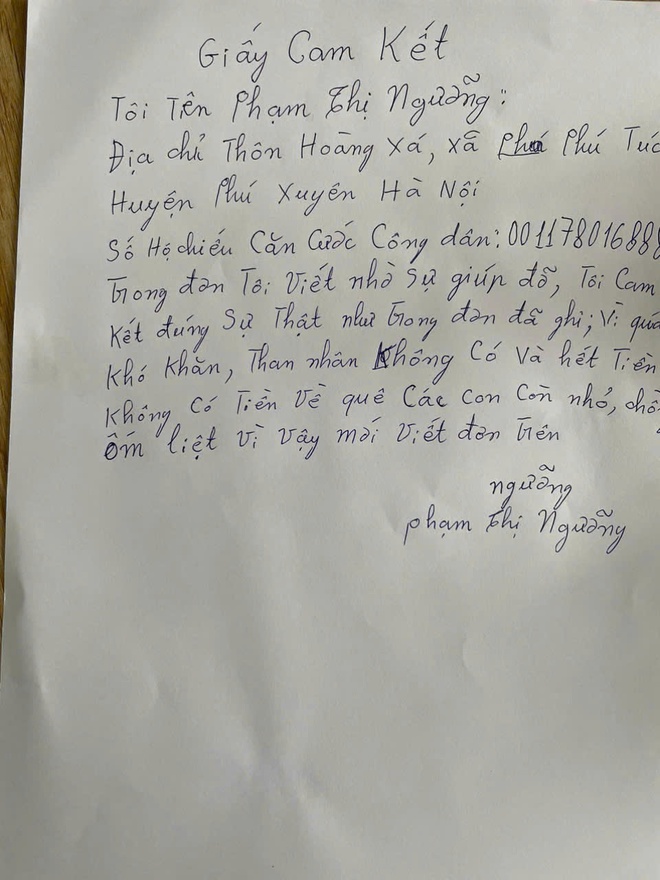 Giấy Cam Kết
Tôi Tên Phạm Thị Ngưỡng:
Địa chỉ Thôn Hoàng Xá, xã Phú Phú Túc
Huyện Phú Xuyên Hà Nội
Số Hộ chiếu Căn Cước Công dân: 001178016888
Trong đơn Tôi Viết nhờ Sự giúp đỡ, Tôi Cam
Kết đúng Sự Thật như Trong đơn đã ghi; Vì quá
Khó Khăn, Than nhân Không Có Và hết Tiền
Không Có Tiền Về quê Các Con Còn nhỏ, chồ
ốm liệt Vì Vậy mới Viết đơn Trên
ngưỡng
phạm Thị Ngưỡng